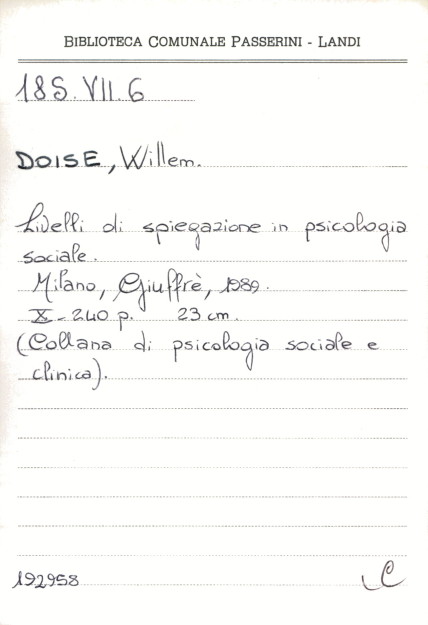 BIBLIOTECA COMUNALE PASSERINI - LANDI
18S. VII. 6
DOISE, Willem.
Livelli di spiegazione in psicologia
sociale.
Milano, Giuffrè, 1989.
X-240 p. 23 cm.
(Collana di psicologia sociale e
clinica).
192958